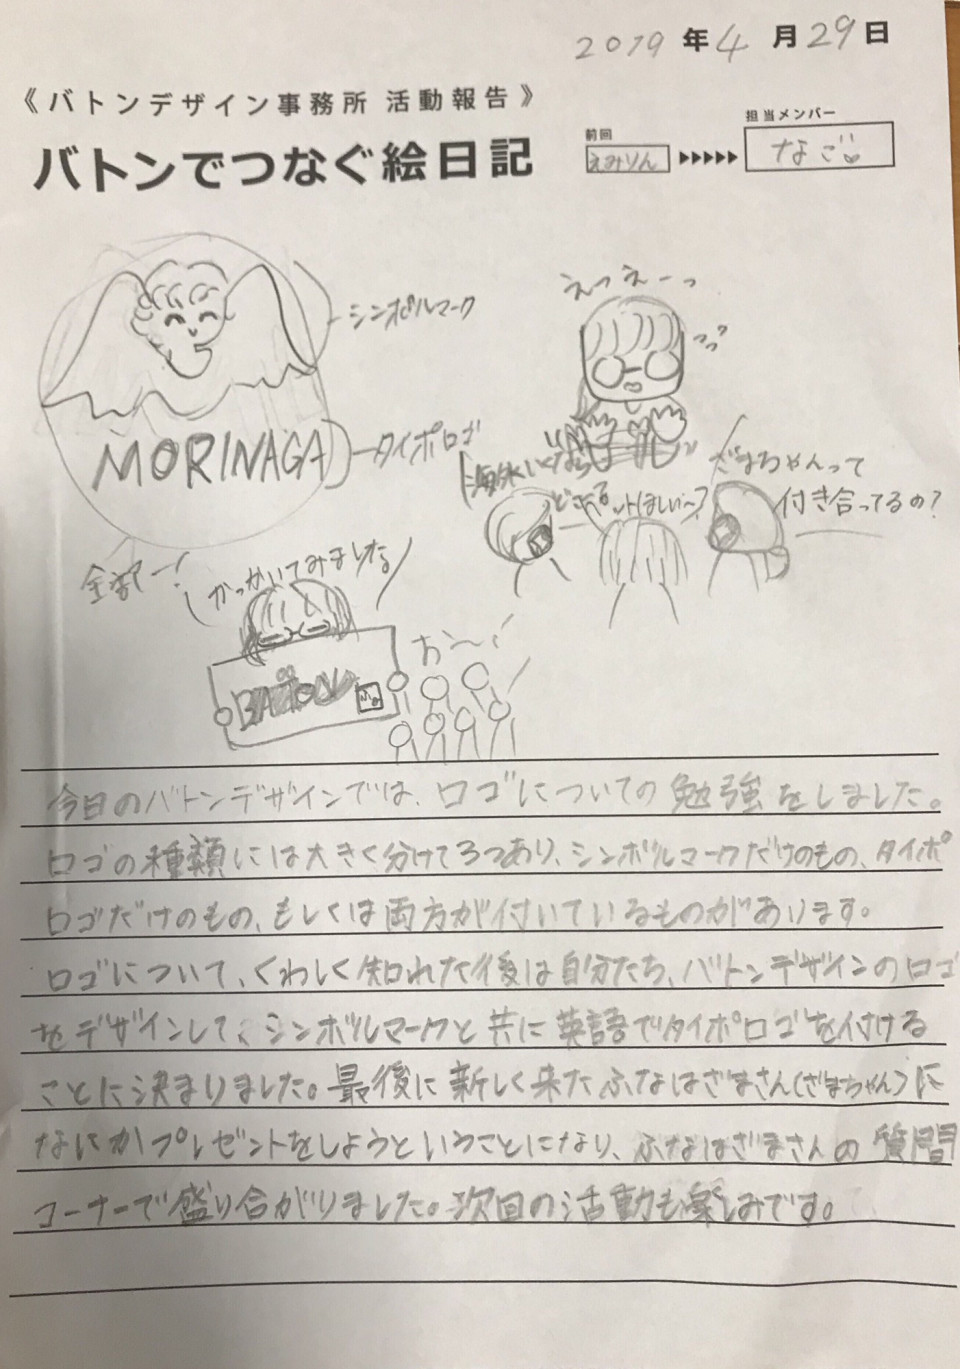 2019年4月29日
《バトンデザイン事務所 活動報告》
バトンでつなぐ絵日記
前回
えみりん
担当メンバー
なご
シンボルマーク
MORINAGA
タイポロゴ
全部ー!
えっえーっ
ざまちゃんって
付き合ってるの?
ほしい〜?
かいてみました
BATON
お〜!
今日のバトンデザインでは、ロゴについての勉強をしました。
ロゴの種類には大きく分けて3つあり、シンボルマークだけのもの、タイポ
ロゴだけのもの、もしくは両方が付いているものがあります。
ロゴについて、くわしく知れた後は自分たち、バトンデザインのロゴ
をデザインして、シンボルマークと共に英語でタイポロゴを付ける
ことに決まりました。最後に新しく来たふなはざまさん(ざまちゃん)に
なにかプレゼントをしようということになり、ふなはざまさんの質問
コーナーで盛り合がりました。次回の活動も楽しみです。